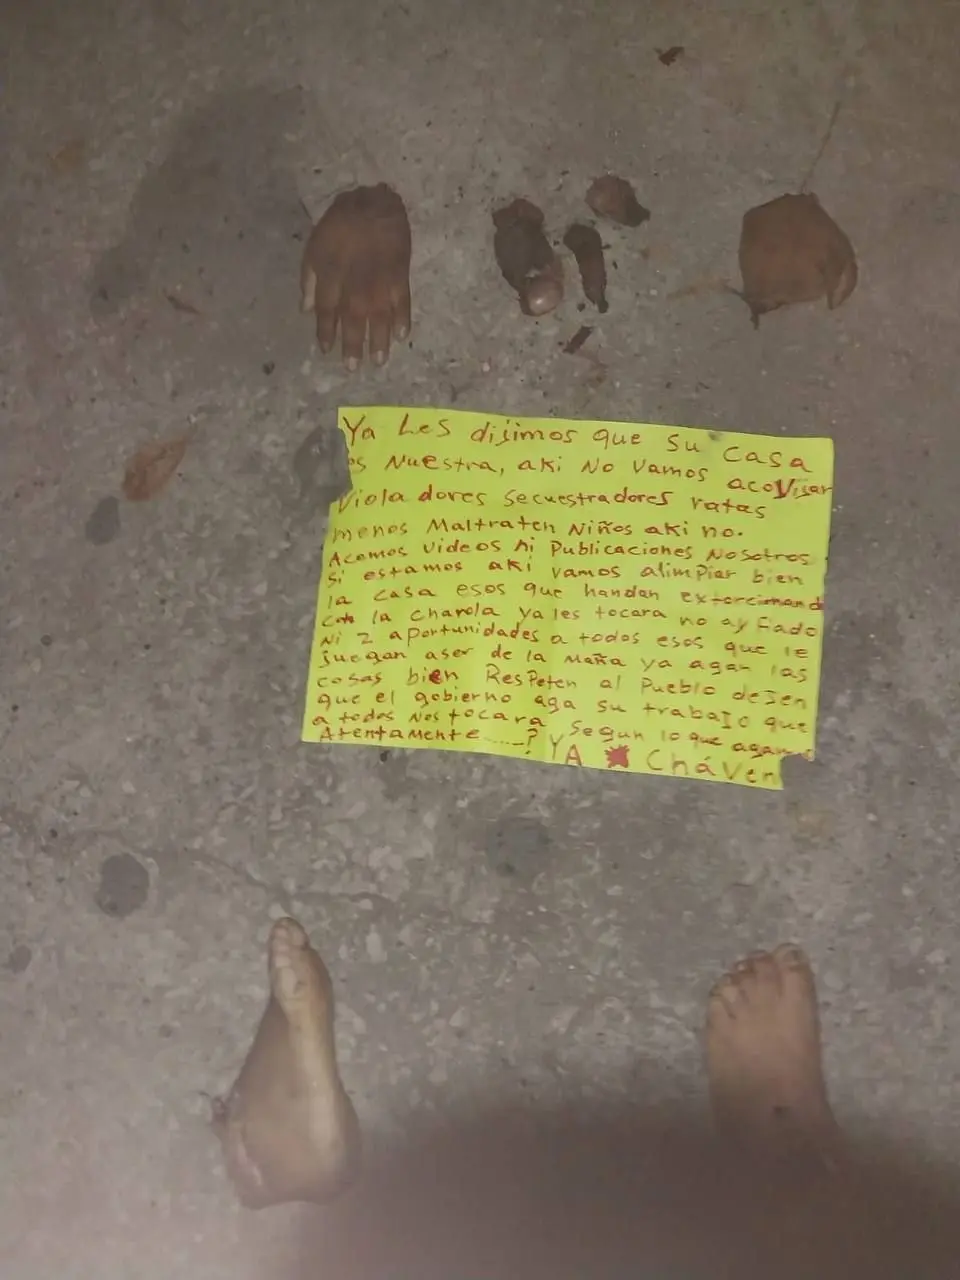 Ya Les dijimos que su casa
es Nuestra, aki No Vamos acoVijar
Viola dores secuestradores ratas
menos Maltraten Niños aki no.
Acemos Videos Ni Publicaciones Nosotros
si estamos aki vamos alimpiar bien
la casa esos que handan extorcinand
con la Charola ya les tocara no ay fiado
Ni 2 aportunidades a todos esos que le
juegan aser de la Maña ya agan las
cosas bien Respeten al Pueblo dejen
que el gobierno aga su trabajo que
a todos Nos tocara segun lo que agamos
Atentamente.....? YA Cháven